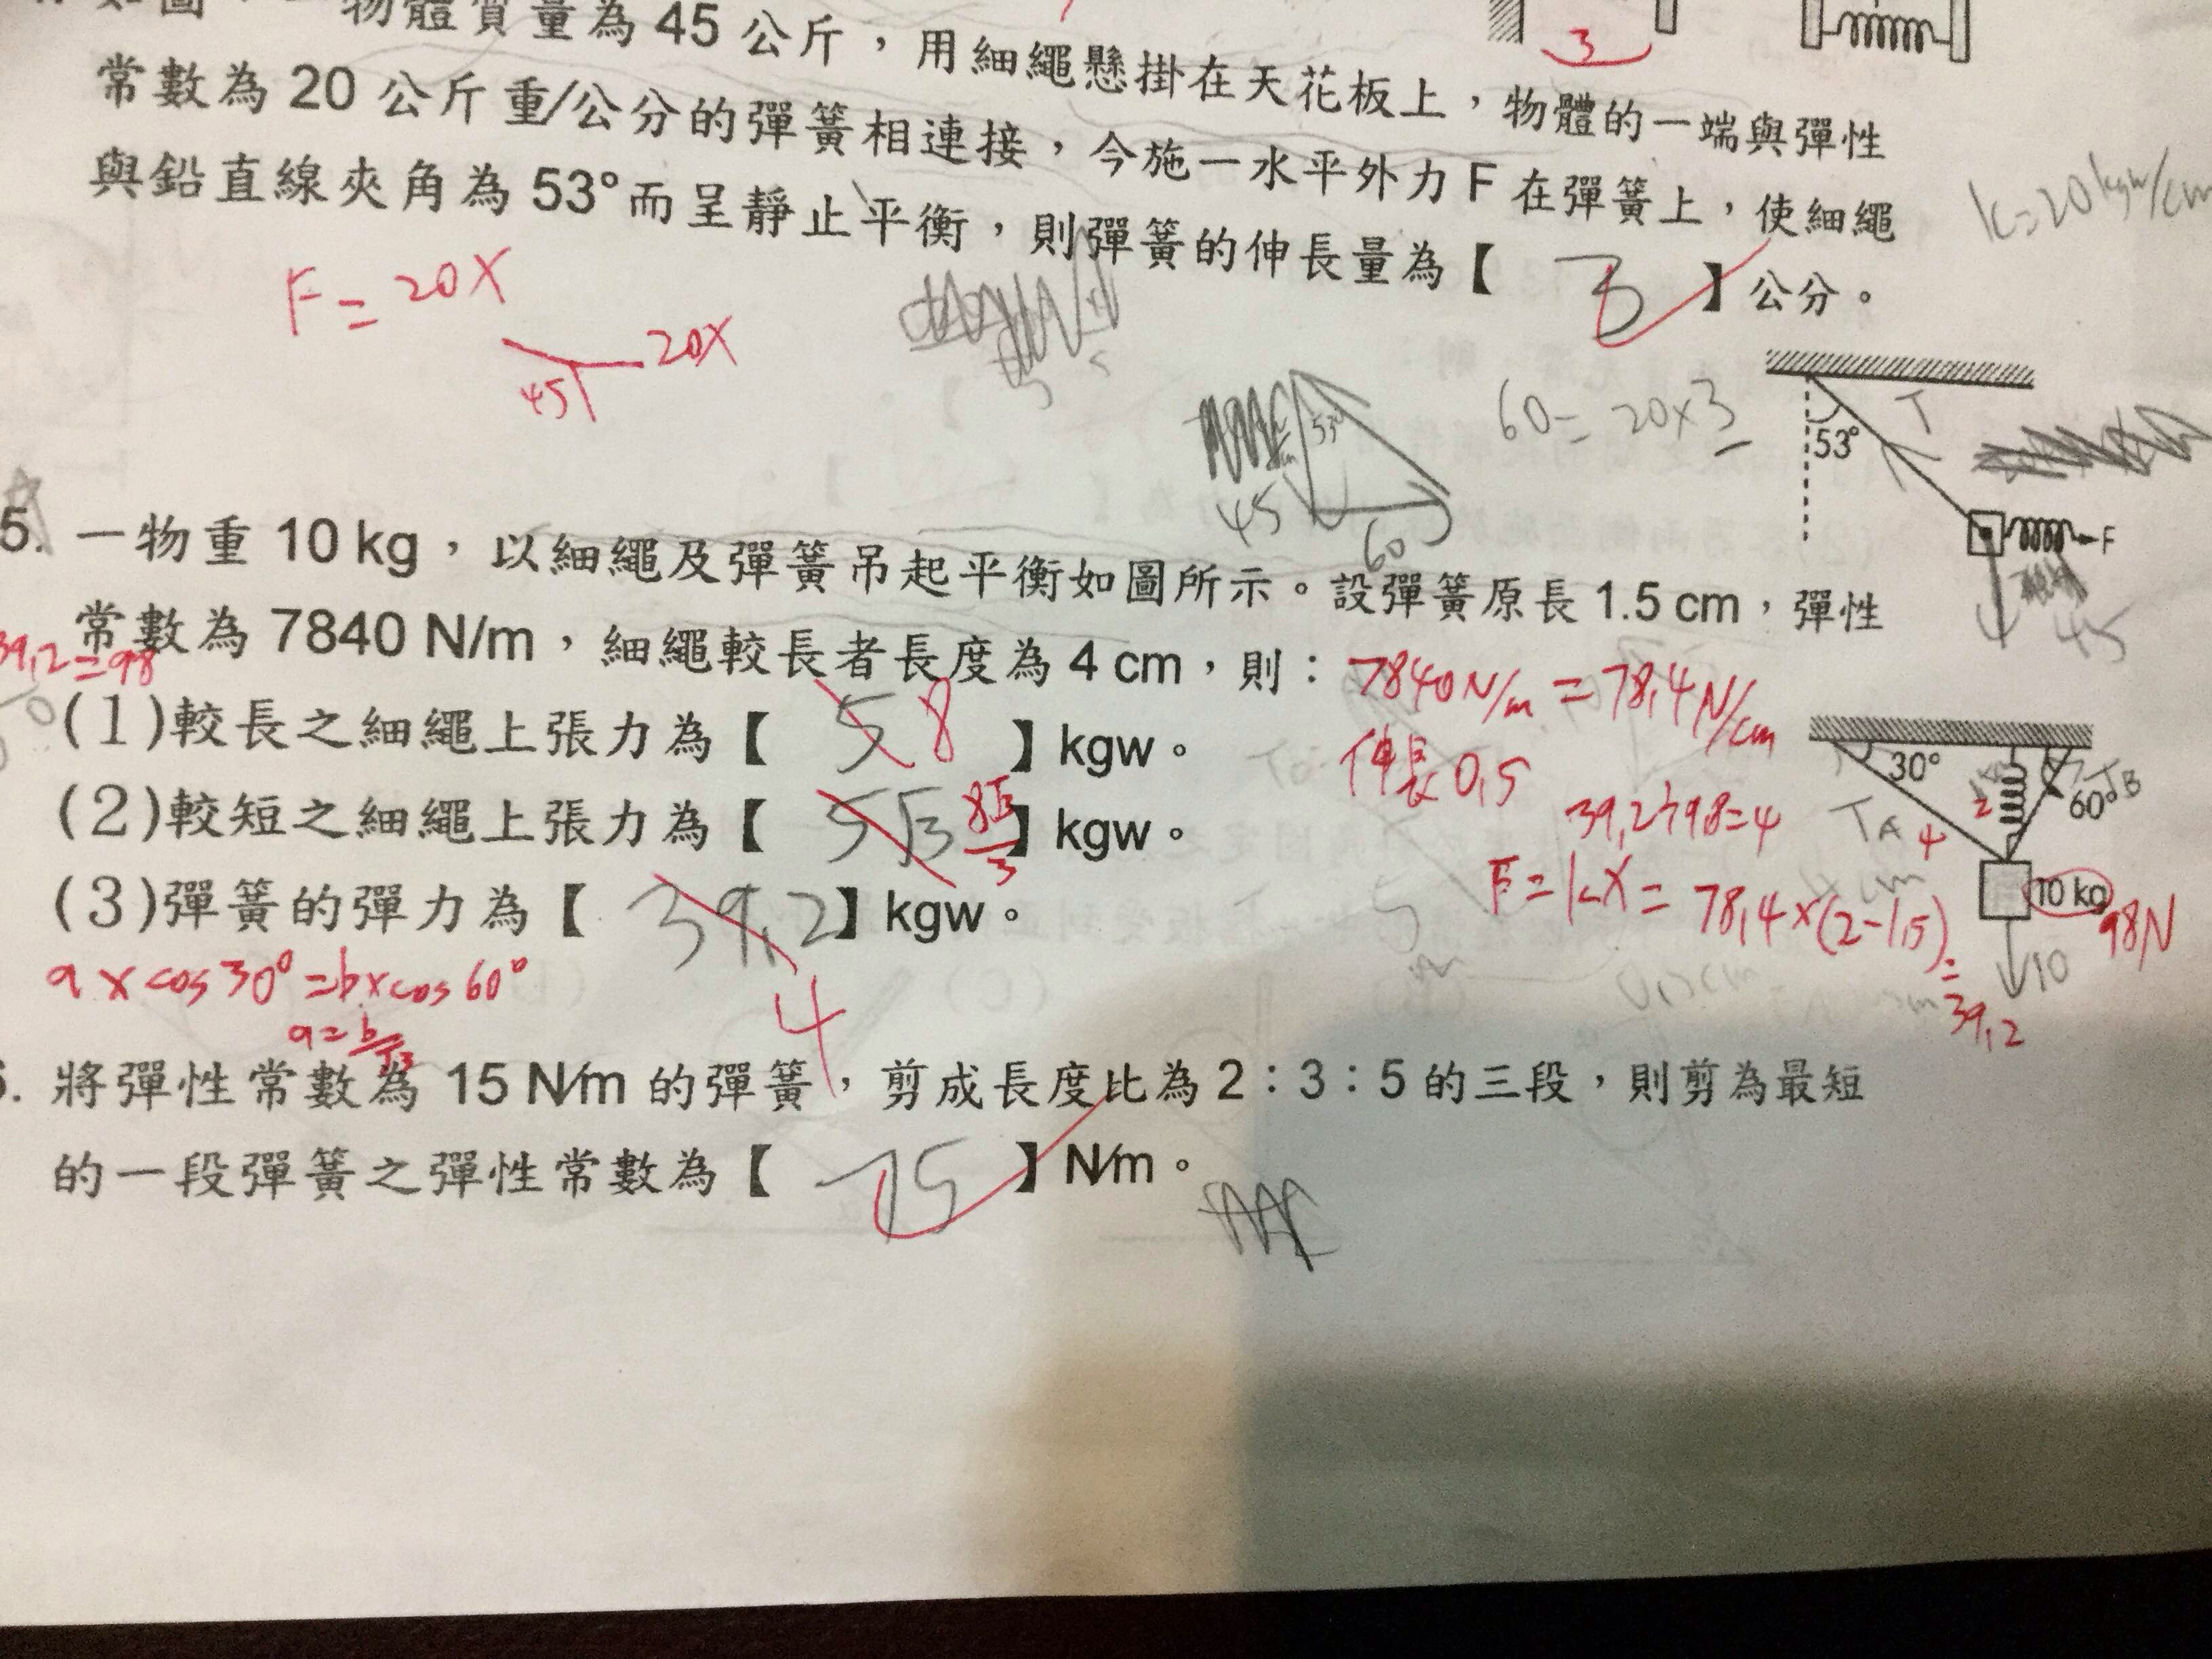 物體質量為 45 公斤，用細繩懸掛在天花板上，物體的一端與彈性
常數為 20 公斤重/公分的彈簧相連接，今施一水平外力 F 在彈簧上，使細繩
與鉛直線夾角為 53°而呈靜止平衡，則彈簧的伸長量為【 3 】公分。
3
k=20kgw/cm
F=20X
20X
45
53°
45
60
60=20×3
53°
T
F
45
5. 一物重 10 kg，以細繩及彈簧吊起平衡如圖所示。設彈簧原長 1.5 cm，彈性
常數為 7840 N/m，細繩較長者長度為 4 cm，則：
39.2=98
7840N/m=78.4N/cm
(1)較長之細繩上張力為【 5 8 】kgw。
伸長0.5
(2)較短之細繩上張力為【 5√3 8√3/3 】kgw。
39.2÷98=4
(3)彈簧的彈力為【 39.2 】kgw。
4
F=kX=78.4×(2-1.5)
=39.2
30°
60°
TA
TB
4
2
10 kg
98N
10
a×cos30°=b×cos60°
a=b/√3
. 將彈性常數為 15 N/m 的彈簧，剪成長度比為 2：3：5 的三段，則剪為最短
的一段彈簧之彈性常數為【 75 】N/m。